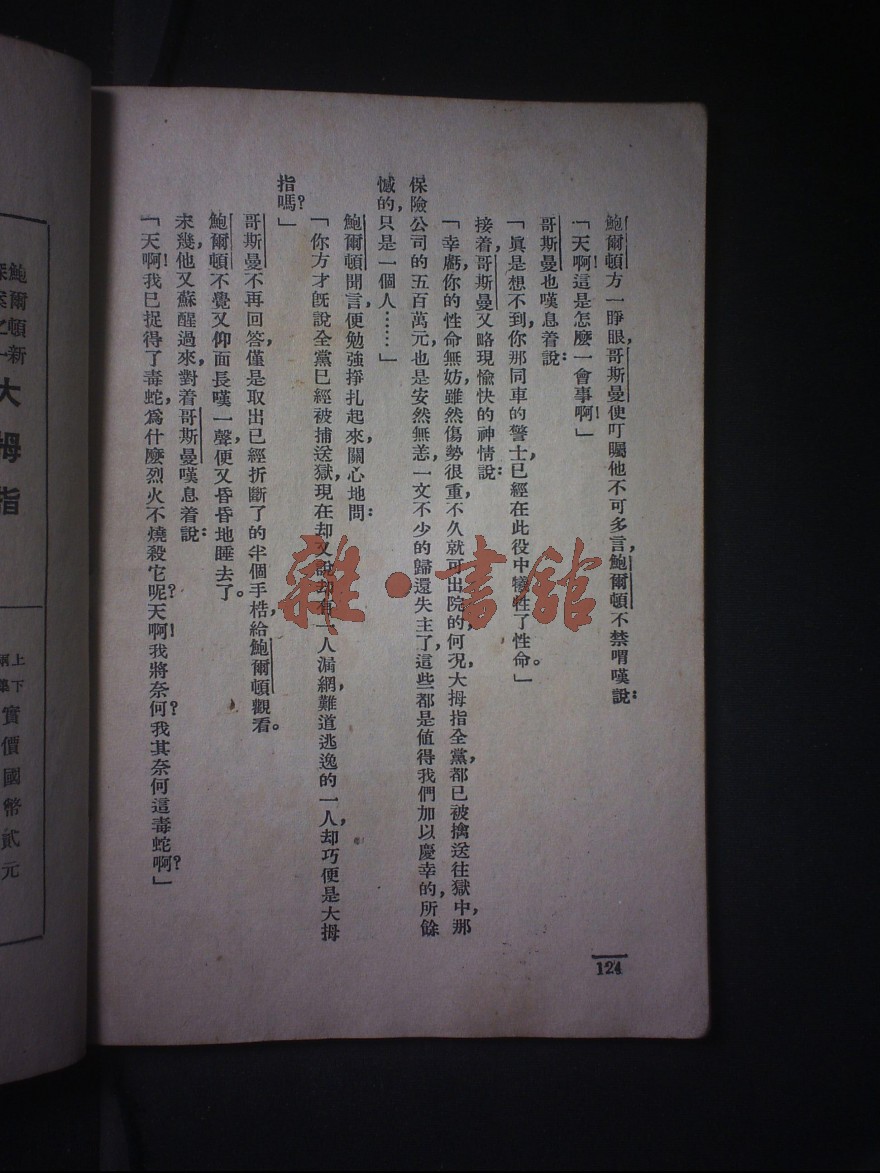 鮑爾頓方一睜眼，哥斯曼便叮囑他不可多言，鮑爾頓不禁喟嘆說：
「天啊！這是怎麼一會事啊！」
哥斯曼也嘆息着說：
「眞是想不到，你那同車的警士，已經在此役中犧牲了性命。」
接着，哥斯曼又略現愉快的神情說：
「幸虧，你的性命無妨，雖然傷勢很重，不久就可出院的，何況，大拇指全黨，都已被擒送往獄中，那
保險公司的五百萬元也是安然無恙，一文不少的歸還失主了，這些都是値得我們加以慶幸的，所餘
憾的，只是一個人……」
鮑爾頓聞言，便勉強掙扎起來，關心地問：
「你方才旣說全黨已經被捕送獄，現在却又說却有一人漏網，難道逃逸的一人，却巧便是大拇
指嗎？」
哥斯曼不再回答，僅是取出已經折斷了的半個手梏，給鮑爾頓觀看。
鮑爾頓不覺又仰面長嘆一聲，便又昏昏地睡去了。
未幾，他又蘇醒過來，對着哥斯曼嘆息着說：
「天啊！我已捉得了毒蛇，爲什麼烈火不燒殺它呢？天啊！我將奈何？我其奈何這毒蛇啊？」
124
鮑爾頓新
探案之一
大拇指
上下
兩集
實價國幣貳元
雜·書館